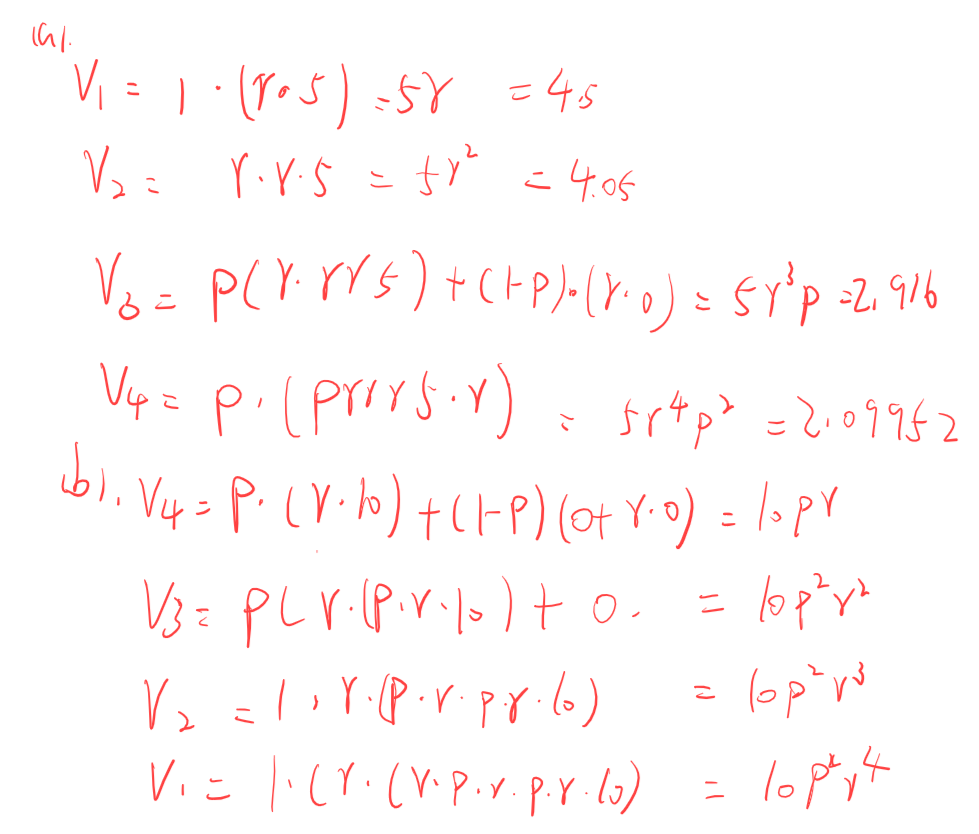 (a).
V₁ = 1 · (γ·5) = 5γ = 4.5
V₂ = γ·γ·5 = 5γ² = 4.05
V₃ = p(γ·γγ5) + (1-p)·(γ·0) = 5γ³p = 2.916
V₄ = p·(pγγγ5·γ) = 5γ⁴p² = 2.09952
(b). V₄ = p·(γ·10) + (1-p)(0+γ·0) = 10pγ
V₃ = p(γ·(p·γ·10) + 0. = 10p²γ²
V₂ = 1·γ·(p·γ·p·γ·10) = 10p²γ³
V₁ = 1·(γ·(γ·p·γ·p·γ·10) = 10p²γ⁴